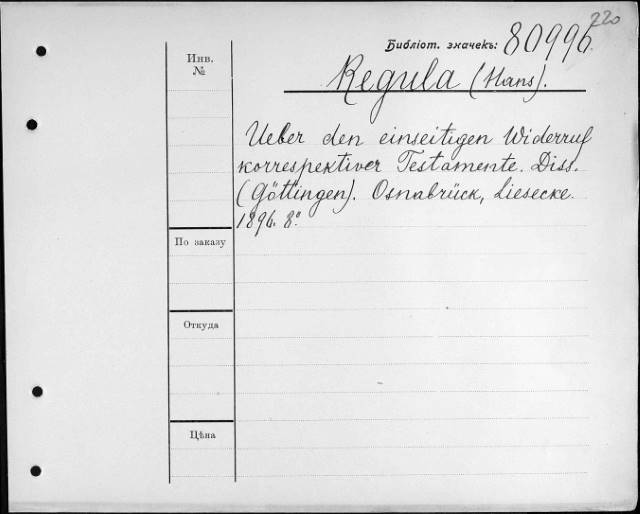 220
Библіот. значекъ: 80996.
Regula (Hans).
Инв.
№
Ueber den einseitigen Widerruf
korrespektiver Testamente. Diss.
(Göttingen). Osnabrück, Liesecke.
1896. 8º.
По заказу
Откуда
Цѣна